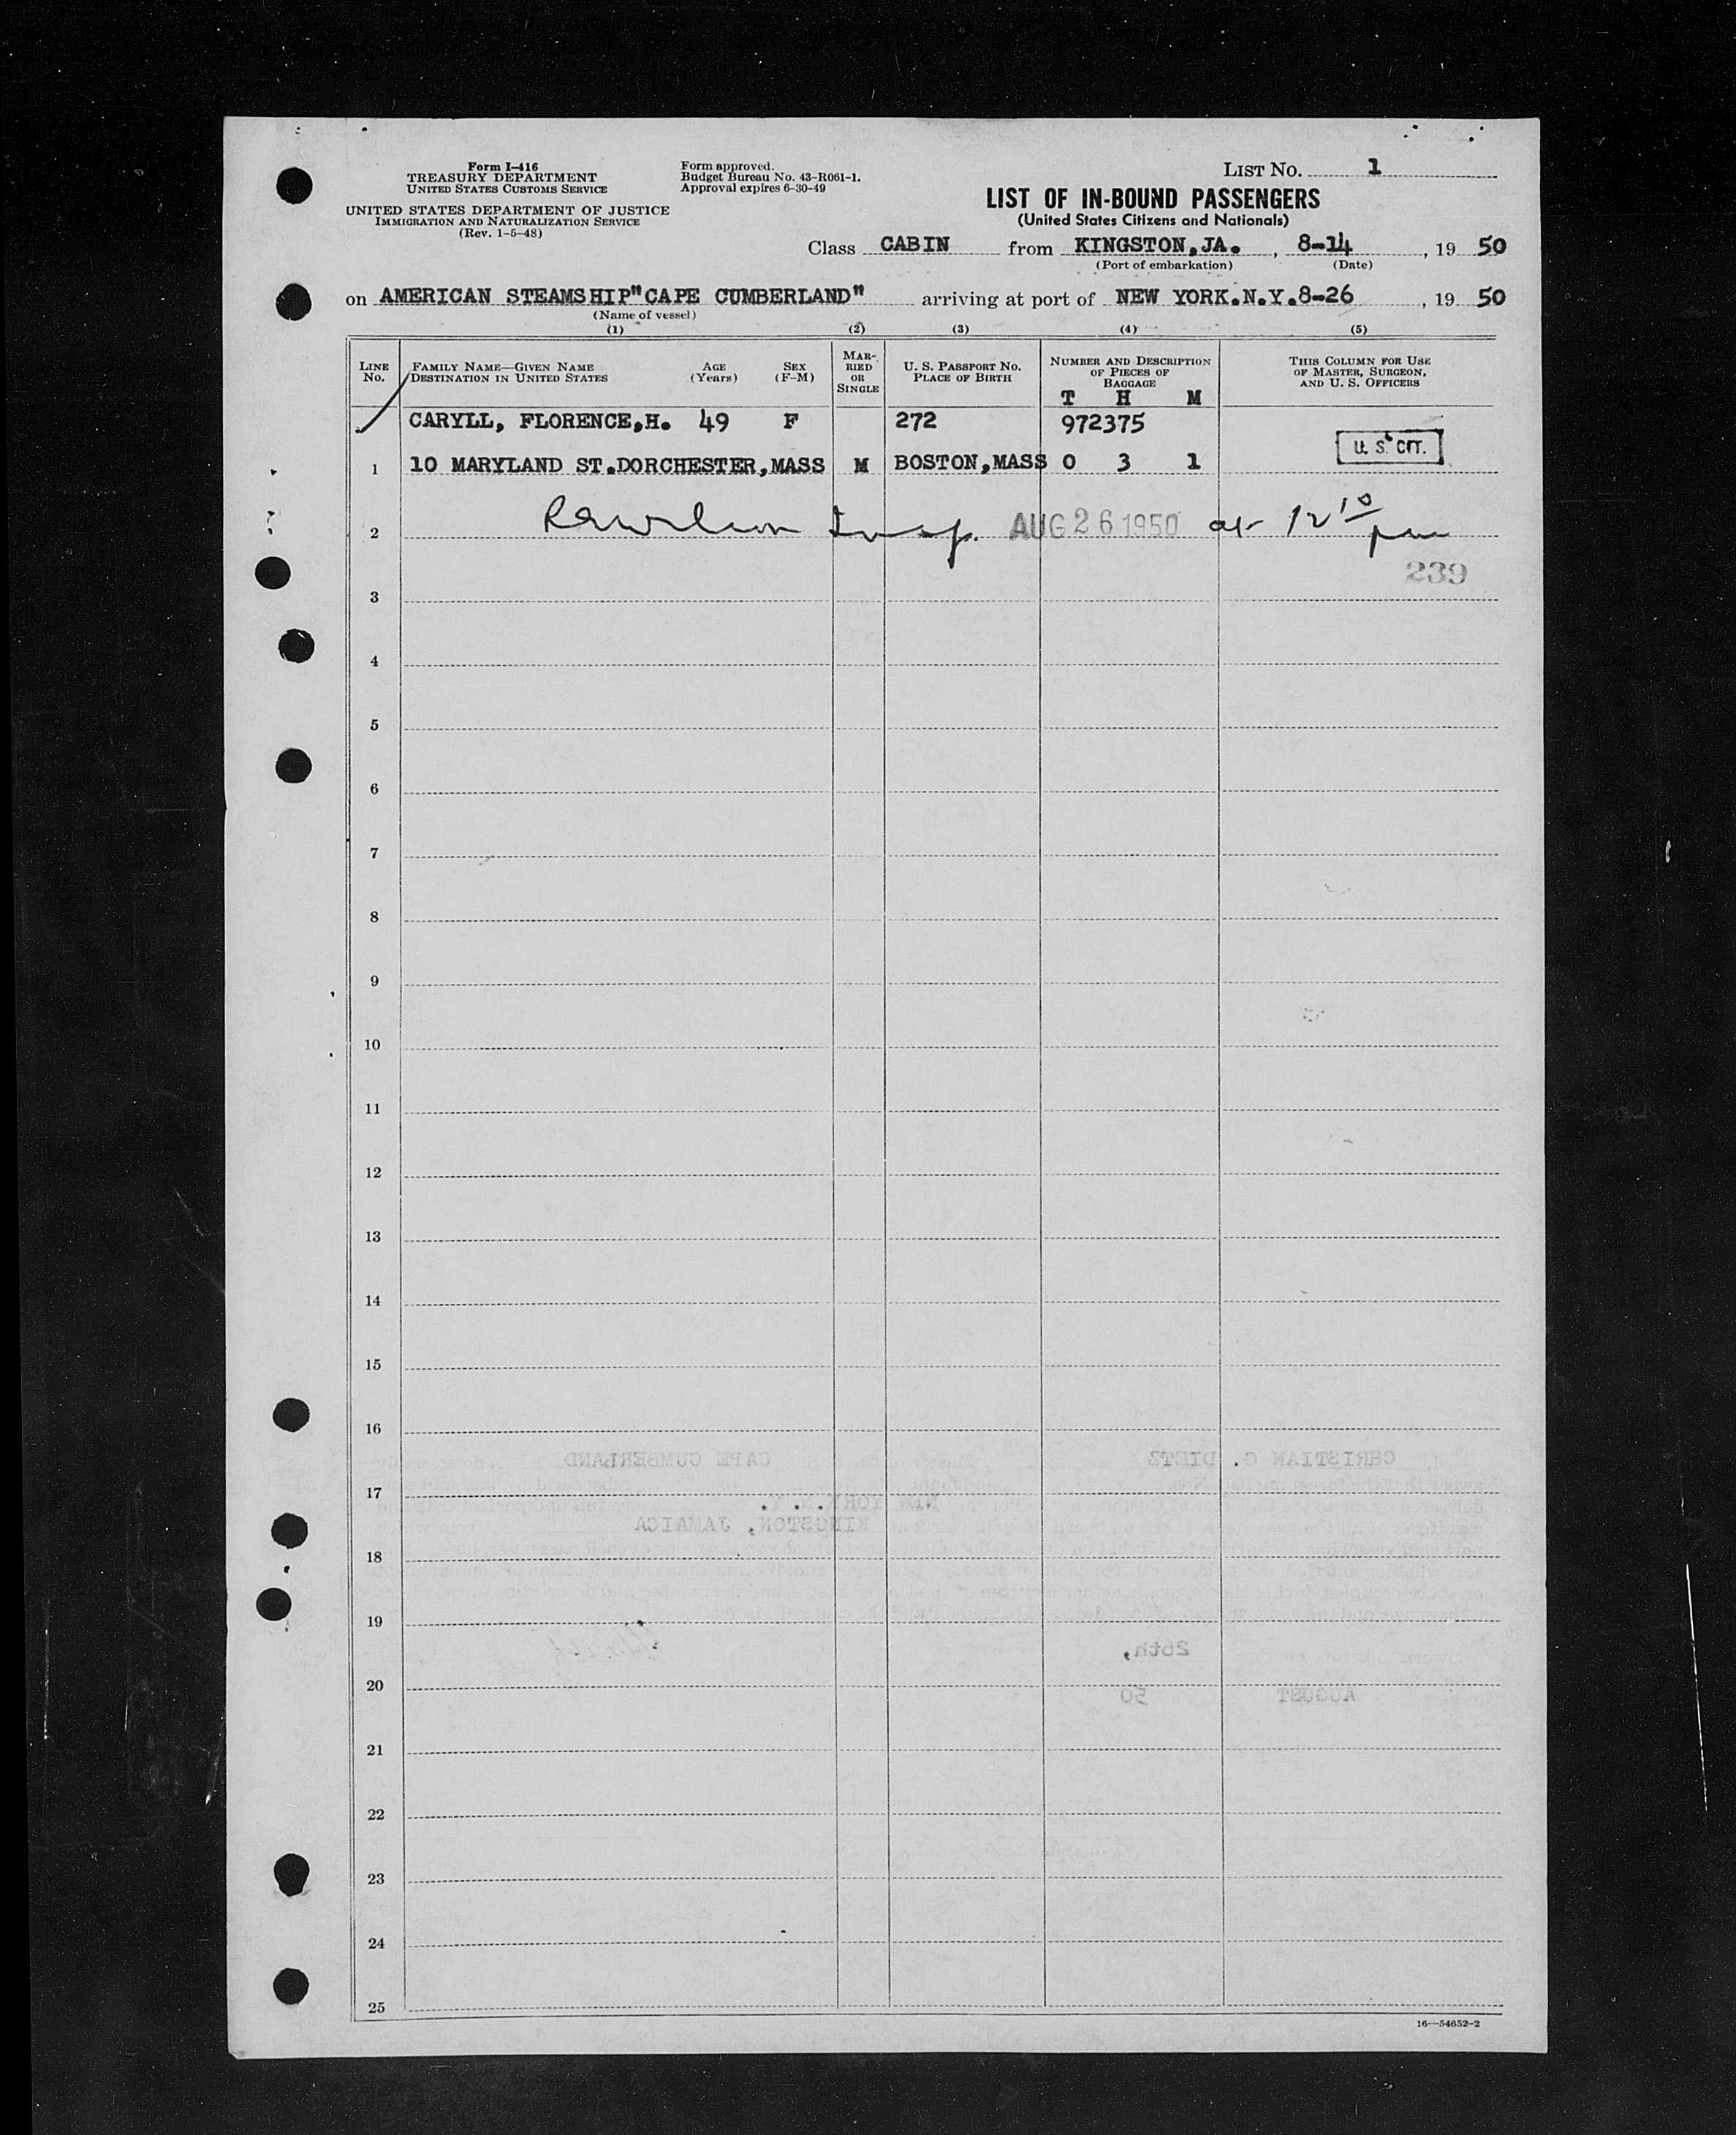 Form I-416
TREASURY DEPARTMENT
UNITED STATES CUSTOMS SERVICE
UNITED STATES DEPARTMENT OF JUSTICE
IMMIGRATION AND NATURALIZATION SERVICE
(Rev. 1-5-48)
Form approved.
Budget Bureau No. 43-R061-1.
Approval expires 6-30-49
LIST NO. 1
LIST OF IN-BOUND PASSENGERS
(United States Citizens and Nationals)
Class CABIN from KINGSTON,JA. , 8-14 , 19 50
(Port of embarkation) (Date)
on AMERICAN STEAMSHIP"CAPE CUMBERLAND" arriving at port of NEW YORK.N.Y.8-26 , 19 50
(Name of vessel)
(1) (2) (3) (4) (5)
LINE No. FAMILY NAME—GIVEN NAME DESTINATION IN UNITED STATES AGE (Years) SEX (F-M) MARRIED OR SINGLE U. S. PASSPORT NO. PLACE OF BIRTH NUMBER AND DESCRIPTION OF PIECES OF BAGGAGE THIS COLUMN FOR USE OF MASTER, SURGEON, AND U. S. OFFICERS
T H M
CARYLL, FLORENCE,H. 49 F 272 972375
1 10 MARYLAND ST.DORCHESTER,MASS M BOSTON,MASS 0 3 1 U. S. CIT.
2 Insp. AUG 26 1950 at 12 10 pm
239
3
4
5
6
7
8
9
10
11
12
13
14
15
16
CHRISTIAN G. DIETZ CAPE CUMBERLAND
17
NEW YORK.N.Y.
KINGSTON, JAMAICA
18
19
26th,
20
AUGUST 50
21
22
23
24
25
16—54652-2